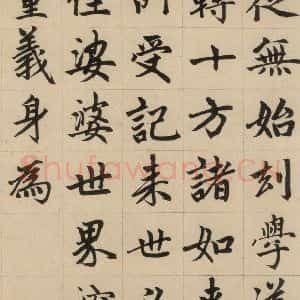 無始刻學
轉十方諸如來
受記未世
娑婆世界
義身為
Shufawang.CN